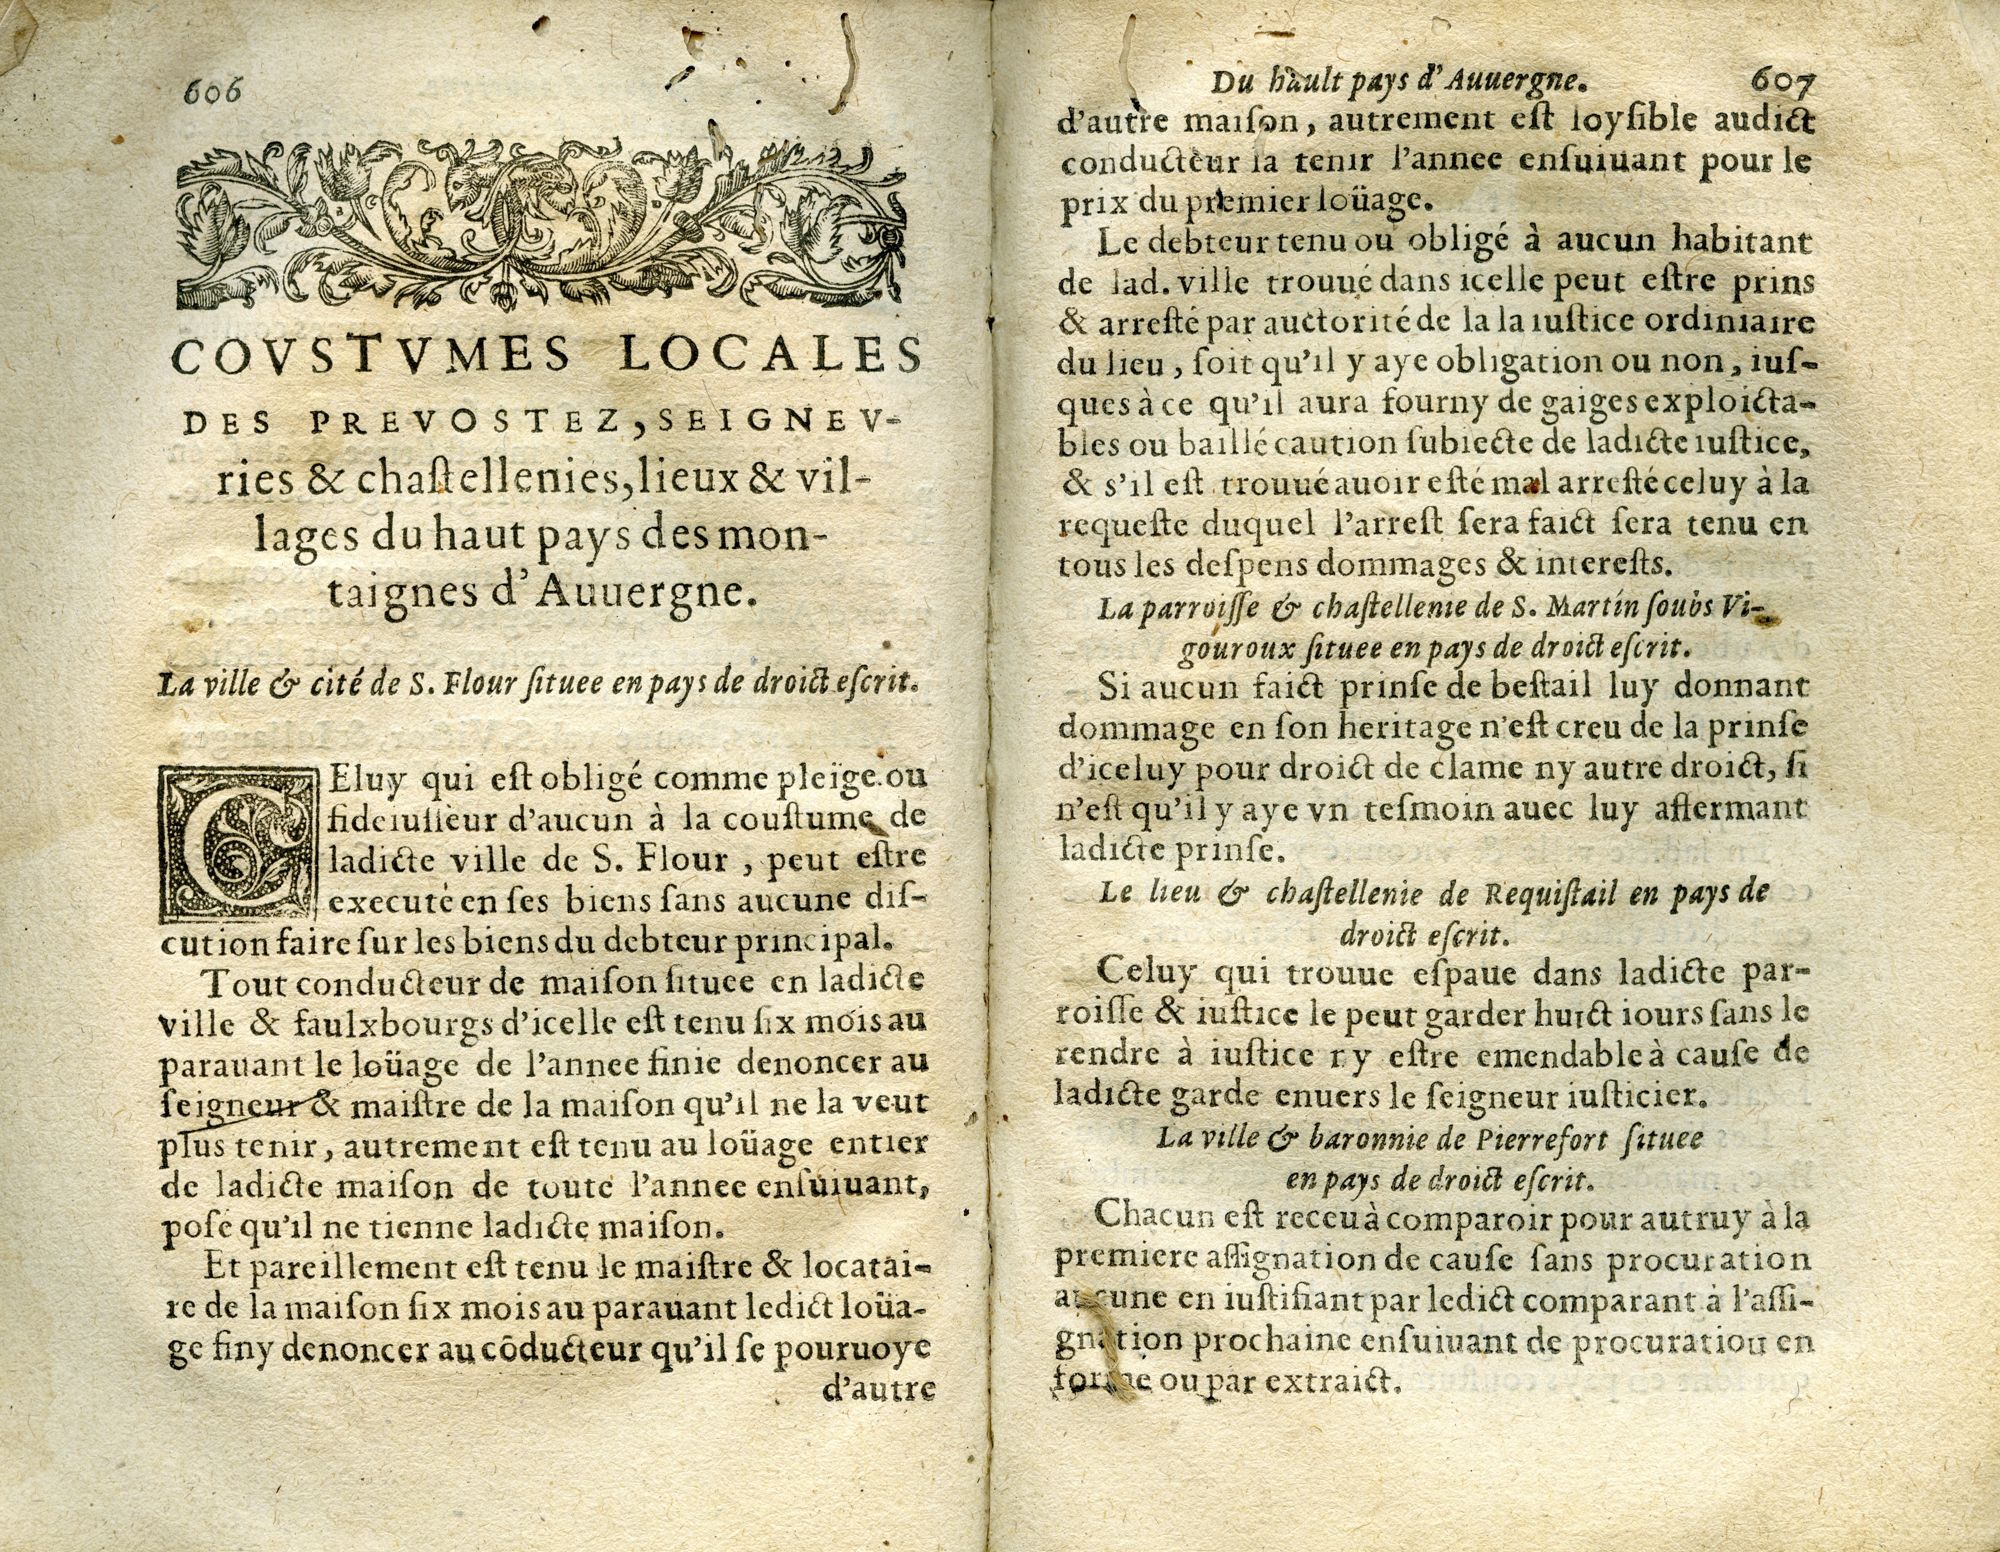 606
COVSTVMES LOCALES
DES PREVOSTEZ, SEIGNEV-
ries & chaſtellenies, lieux & vil-
lages du haut pays des mon-
taignes d'Auuergne.
La ville & cité de S. Flour ſituee en pays de droict eſcrit.
CEluy qui eſt obligé comme pleige ou
fideiuſſeur d'aucun à la couſtume de
ladicte ville de S. Flour, peut eſtre
executé en ſes biens ſans aucune diſ-
cution faire ſur les biens du debteur principal.
Tout conducteur de maiſon ſituee en ladicte
ville & faulxbourgs d'icelle eſt tenu ſix mois au
parauant le loüage de l'annee finie denoncer au
ſeigneur & maiſtre de la maiſon qu'il ne la veut
plus tenir, autrement eſt tenu au loüage entier
de ladicte maiſon de toute l'annee enſuiuant,
poſé qu'il ne tienne ladicte maiſon.
Et pareillement eſt tenu le maiſtre & locatai-
re de la maiſon ſix mois au parauant ledict loüa-
ge finy denoncer au cōducteur qu'il ſe pouruoye
d'autre
Du hault pays d'Auuergne. 607
d'autre maiſon, autrement eſt loyſible audict
conducteur la tenir l'annee enſuiuant pour le
prix du premier loüage.
Le debteur tenu ou obligé à aucun habitant
de lad. ville trouué dans icelle peut eſtre prins
& arreſté par auctorité de la la iuſtice ordiniaire
du lieu, ſoit qu'il y aye obligation ou non, iuſ-
ques à ce qu'il aura fourny de gaiges exploicta-
bles ou baillé caution ſubiecte de ladicte iuſtice,
& s'il eſt trouué auoir eſté mal arreſté celuy à la
requeſte duquel l'arreſt ſera faict ſera tenu en
tous les deſpens dommages & intereſts.
La parroiſſe & chaſtellenie de S. Martin ſoubs Vi-
gouroux ſituee en pays de droict eſcrit.
Si aucun faict prinſe de beſtail luy donnant
dommage en ſon heritage n'eſt creu de la prinſe
d'iceluy pour droict de clame ny autre droict, ſi
n'eſt qu'il y aye vn teſmoin auec luy affermant
ladicte prinſe.
Le lieu & chaſtellenie de Requiſtail en pays de
droict eſcrit.
Celuy qui trouue eſpaue dans ladicte par-
roiſſe & iuſtice le peut garder huict iours ſans le
rendre à iuſtice ny eſtre emendable à cauſe de
ladicte garde enuers le ſeigneur iuſticier.
La ville & baronnie de Pierrefort ſituee
en pays de droict eſcrit.
Chacun eſt receu à comparoir pour autruy à la
premiere aſſignation de cauſe ſans procuration
aucune en iuſtifiant par ledict comparant à l'aſſi-
gnation prochaine enſuiuant de procuration en
forme ou par extraict.